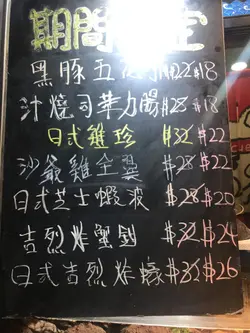 期間限定
黑豚五花腩 $22 $18
汁燒司華力腸 $28 $18
日式雞珍 $32 $22
沙爹雞全翼 $28 $22
日式芝士蝦波 $28 $20
吉烈炸蟹鉗 $32 $24
日式吉烈炸蠔 $32 $26